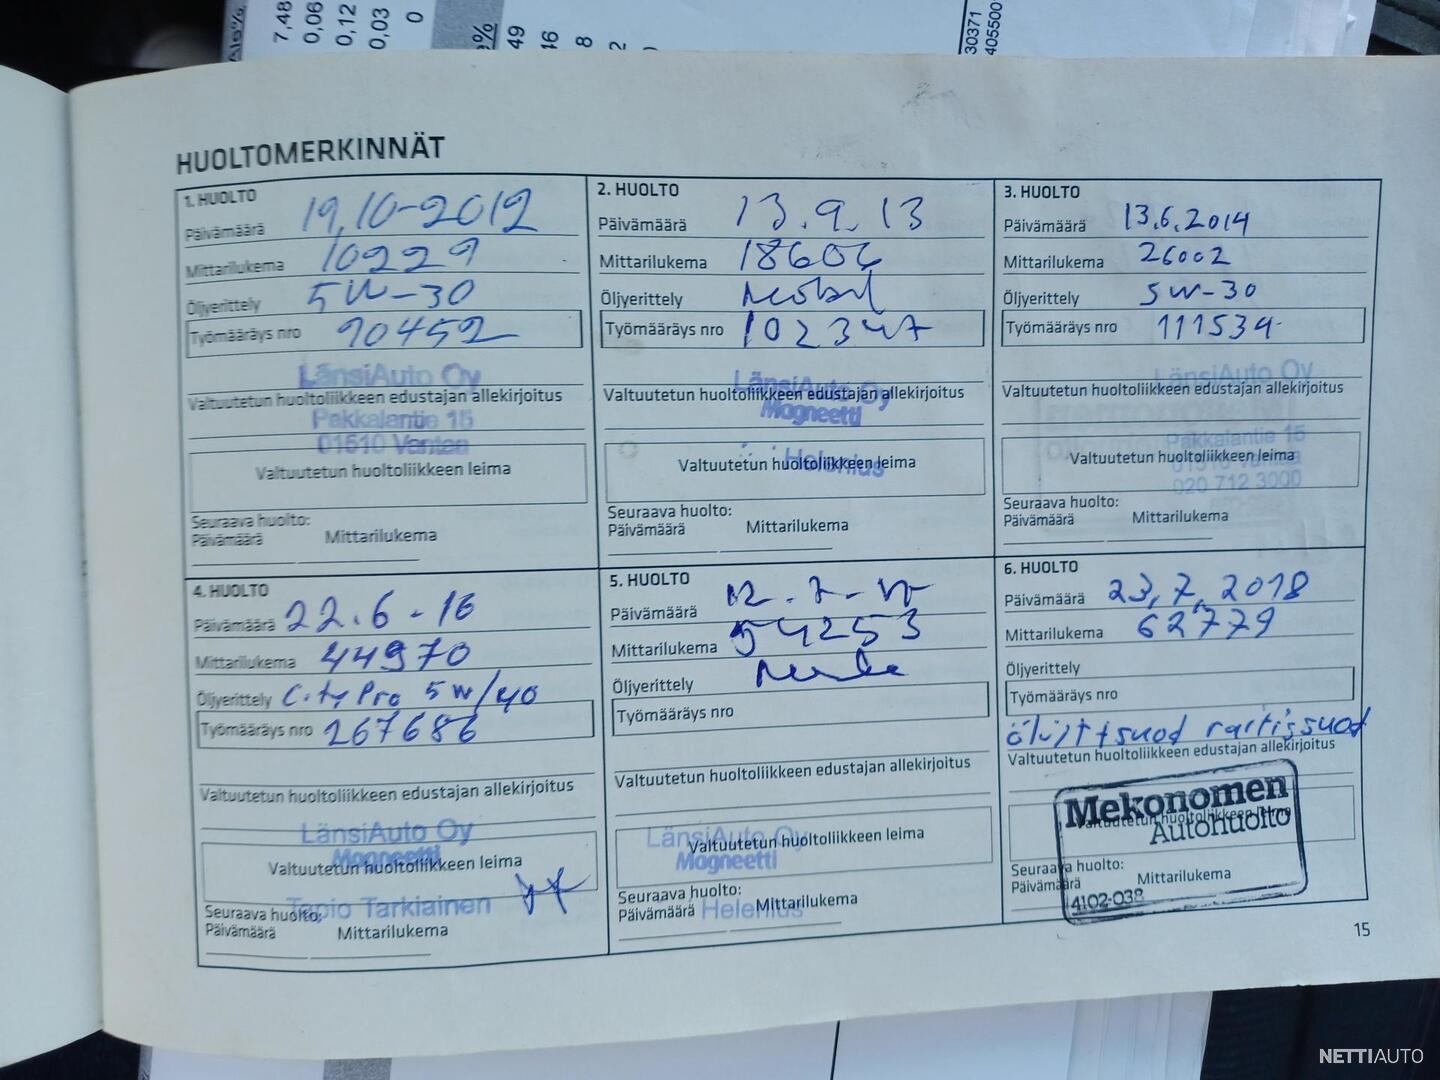 7,48
0,06
0,12
0,03
0
49
46
8
30371
405500
HUOLTOMERKINNÄT
1. HUOLTO
Päivämäärä 19,10-2012
Mittarilukema 10229
Öljyerittely 5W-30
Työmääräys nro 90452
LänsiAuto Oy
Valtuutetun huoltoliikkeen edustajan allekirjoitus
Pakkalantie 15
01510 Vantaa
Valtuutetun huoltoliikkeen leima
Seuraava huolto:
Päivämäärä Mittarilukema
2. HUOLTO
Päivämäärä 13.9.13
Mittarilukema 18606
Öljyerittely Mobil
Työmääräys nro 102347
LänsiAuto Oy
Valtuutetun huoltoliikkeen edustajan allekirjoitus
Magneetti
Valtuutetun huoltoliikkeen leima
Helenius
Seuraava huolto:
Päivämäärä Mittarilukema
3. HUOLTO
Päivämäärä 13.6.2014
Mittarilukema 26002
Öljyerittely 5W-30
Työmääräys nro 111534
LänsiAuto Oy
Valtuutetun huoltoliikkeen edustajan allekirjoitus
Pakkalantie 15
Valtuutetun huoltoliikkeen leima
01510 Vantaa
020 712 3000
Seuraava huolto:
Päivämäärä Mittarilukema
4. HUOLTO
Päivämäärä 22.6-16
Mittarilukema 44970
Öljyerittely CityPro 5W/40
Työmääräys nro 267686
Valtuutetun huoltoliikkeen edustajan allekirjoitus
LänsiAuto Oy
Magneetti
Valtuutetun huoltoliikkeen leima
Tapio Tarkiainen
Seuraava huolto:
Päivämäärä Mittarilukema
5. HUOLTO
Päivämäärä 12.7-17
Mittarilukema 54253
Öljyerittely
Työmääräys nro
Valtuutetun huoltoliikkeen edustajan allekirjoitus
LänsiAuto Oy
Valtuutetun huoltoliikkeen leima
Magneetti
Seuraava huolto:
Päivämäärä Mittarilukema
Helenius
6. HUOLTO
Päivämäärä 23,7,2018
Mittarilukema 62779
Öljyerittely
Työmääräys nro
öljyt+suod raitissuod
Valtuutetun huoltoliikkeen edustajan allekirjoitus
Mekonomen
Autohuolto
Valtuutetun huoltoliikkeen leima
Seuraava huolto:
Päivämäärä Mittarilukema
4102-038
15
NETTIAUTO